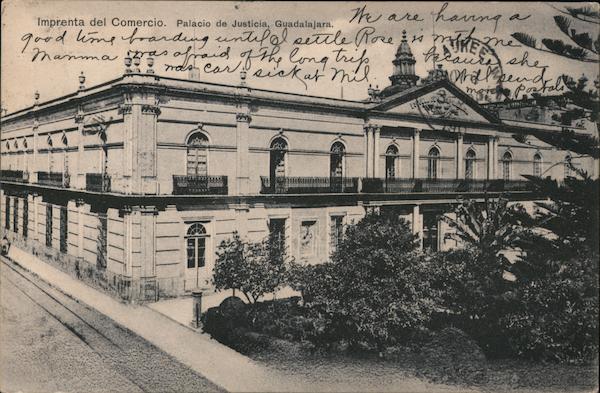 Imprenta del Comercio. Palacio de Justicia, Guadalajara.
We are having a
good time boarding until I settle Rose is with me
Mamma was afraid of the long trip because she
was car sick at Mil. Will send
more postals